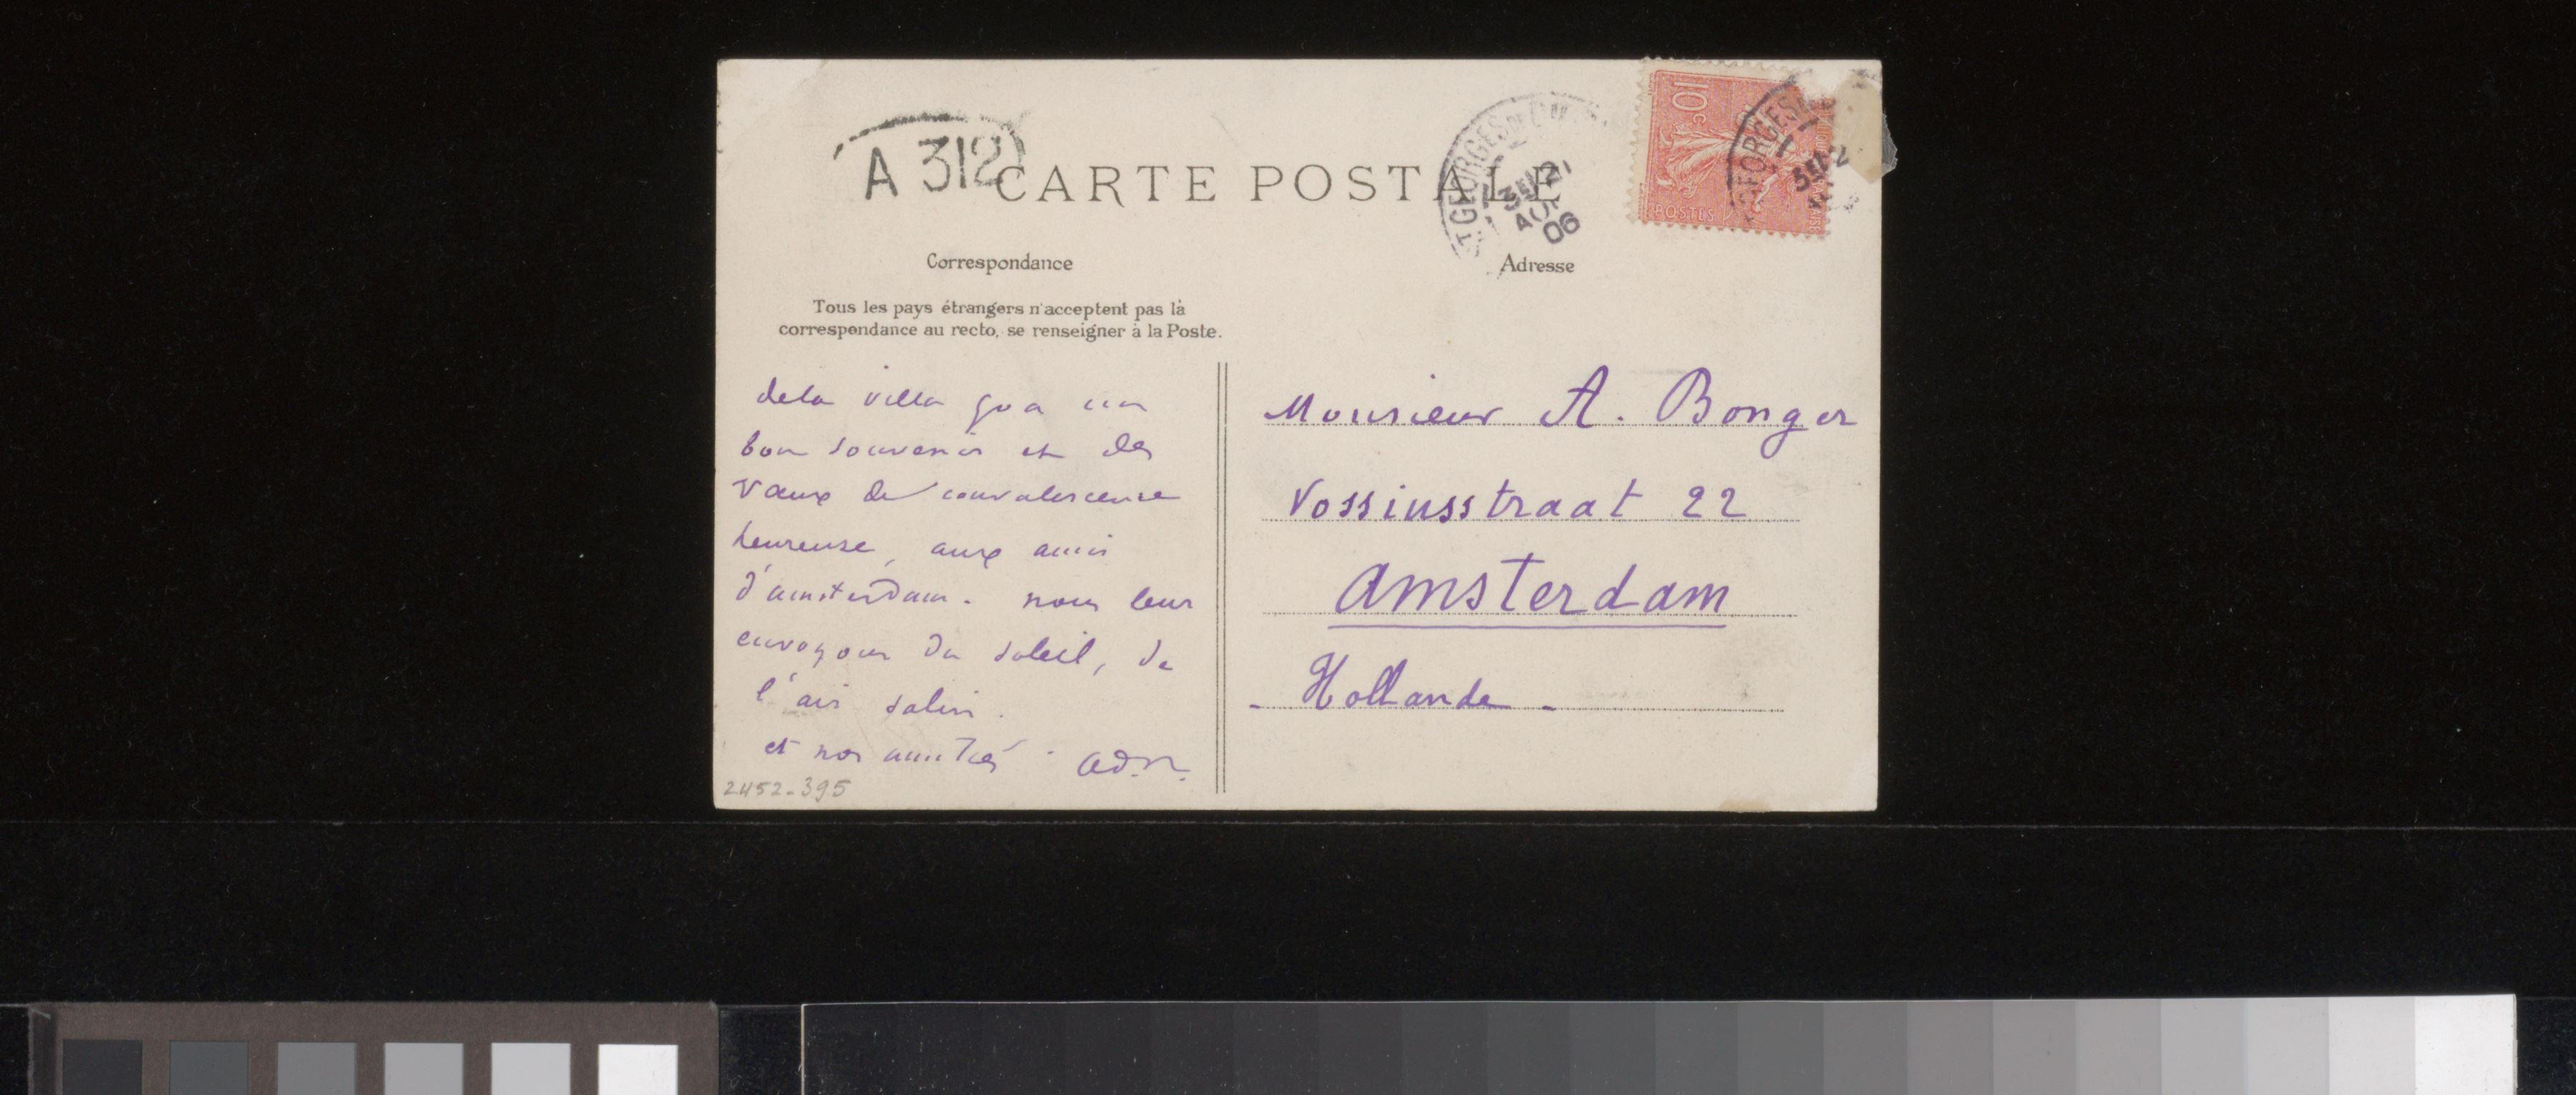 A 312
CARTE POSTALE
ST GEORGES DE
3E 21
AOU
06
10c
POSTES
GEORGES
3E 2
Correspondance
Adresse
Tous les pays étrangers n'acceptent pas là
correspondance au recto, se renseigner à la Poste.
de la villa Goa un
bon souvenir et des
vœux de convalescence
heureuse, aux amis
d'amsterdam. nous leur
envoyons du soleil, de
l'air salin.
et nos amitiés. Od. R.
2452-395
Monsieur A. Bonger
Vossiusstraat 22
Amsterdam
- Hollande -